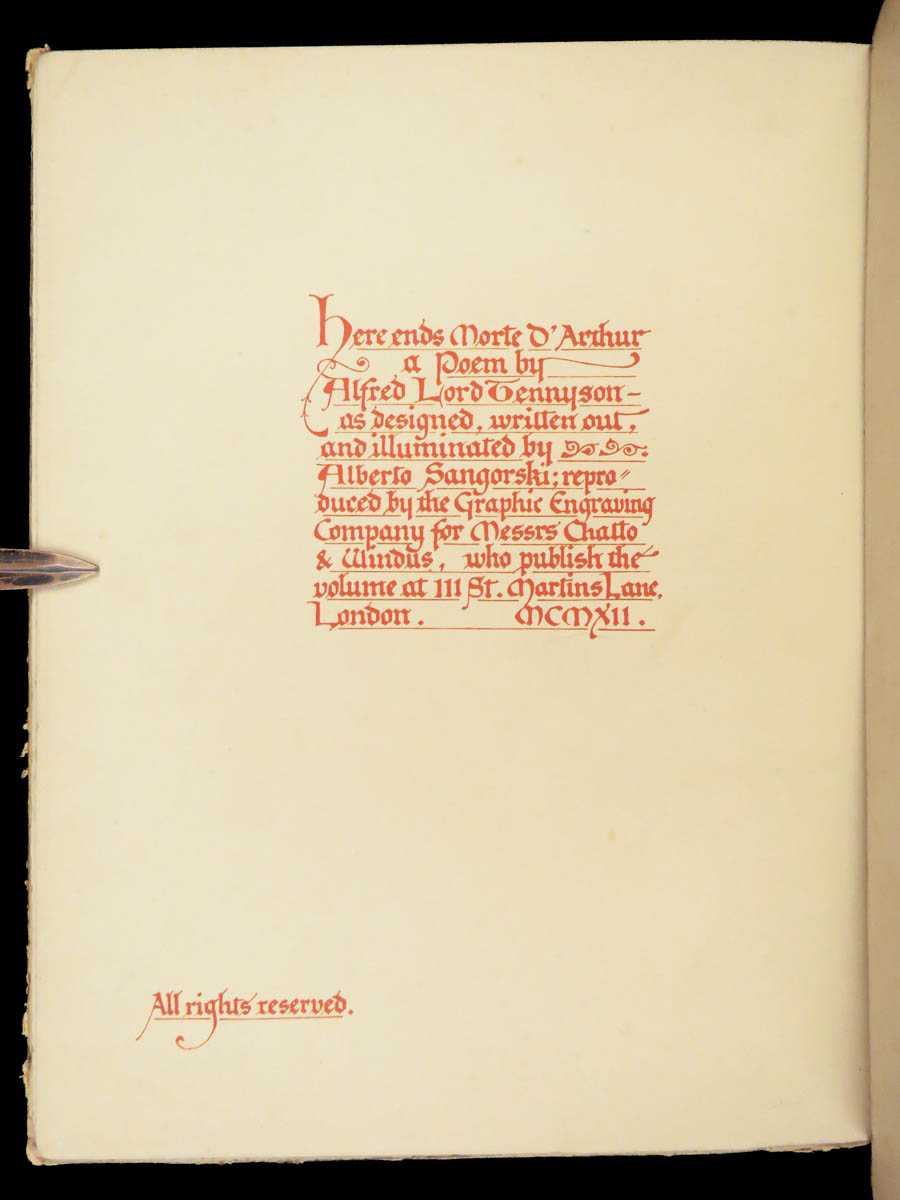 Here ends Morte D'Arthur
a Poem by
Alfred Lord Tennyson -
as designed, written out,
and illuminated by
Alberto Sangorski; repro=
duced by the Graphic Engraving
Company for Messrs Chatto
& Windus, who publish the
volume at 111 St. Martins Lane,
London. MCMXII.
All rights reserved.